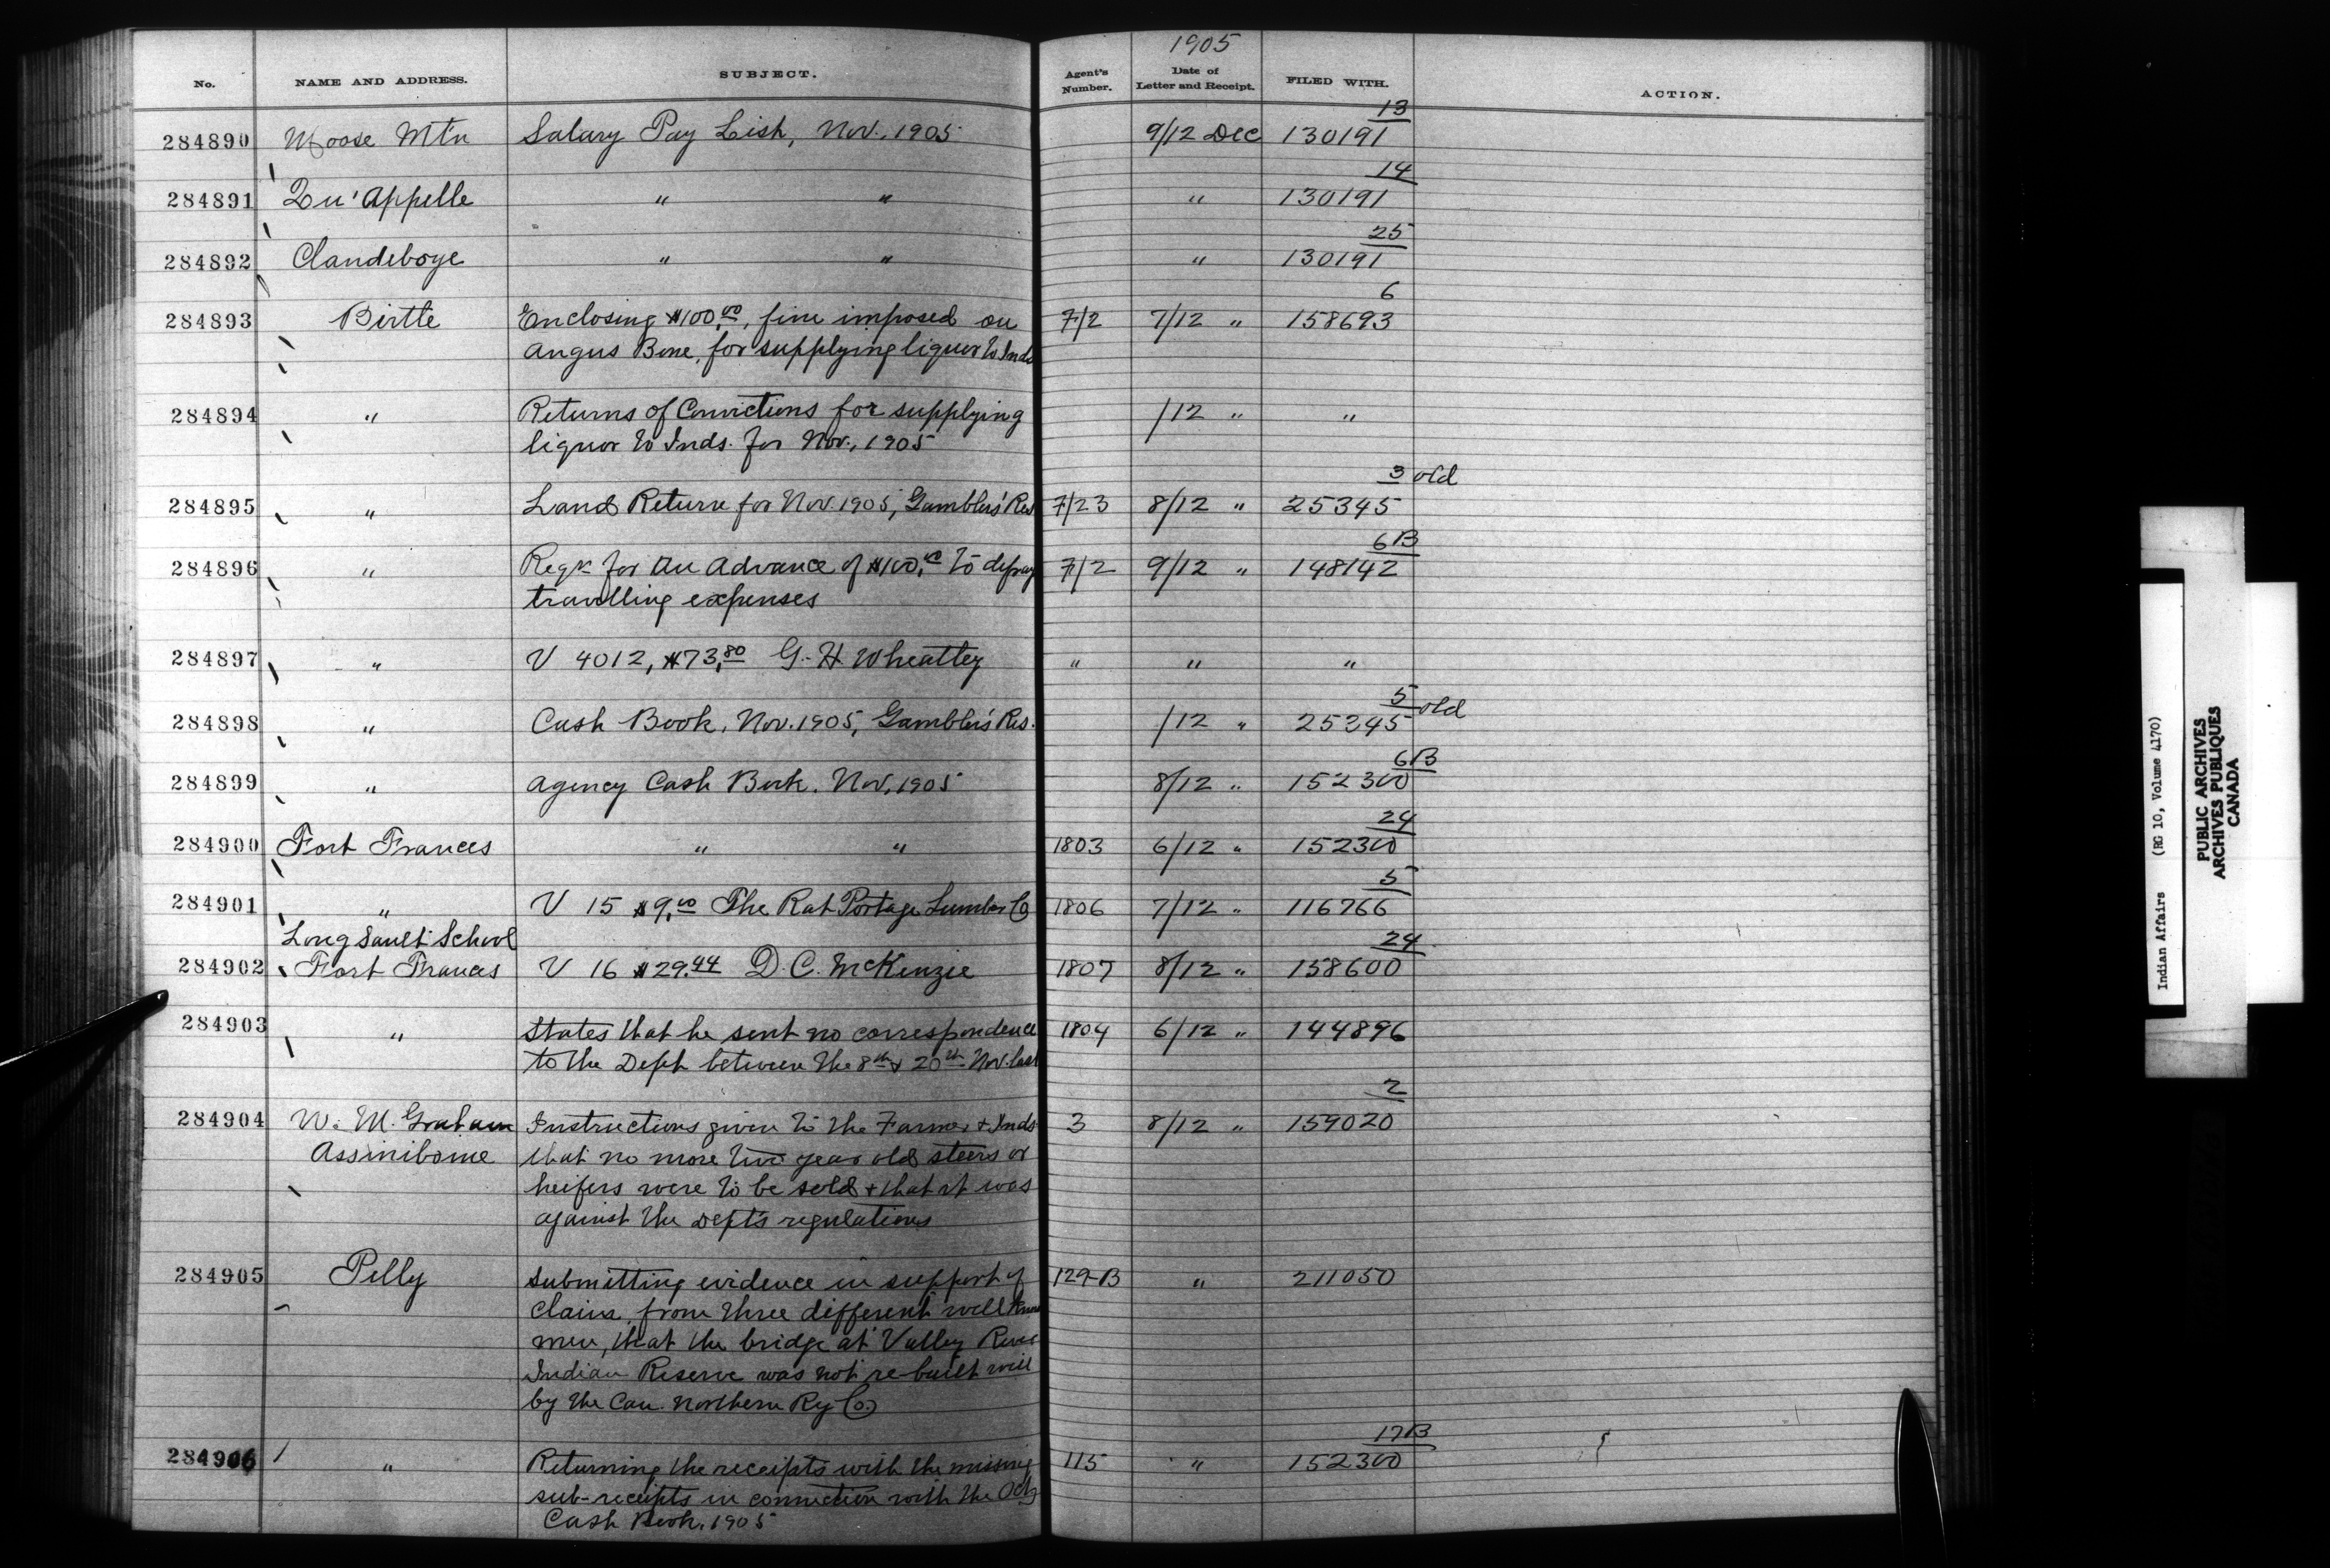 1905
No. NAME AND ADDRESS. SUBJECT. Agent's Number. Date of Letter and Receipt. FILED WITH. ACTION.
13
284890 Moose Mtn Salary Pay List, Nov. 1905 9/12 Dec 130191
14
284891 Qu'Appelle " " " 130191
25
284892 Clandeboye " " " 130191
6
284893 Birtle Enclosing $100.00, fine imposed on 7/2 7/12 " 158693
Angus Bone, for supplying liquor to Inds
284894 " Returns of Convictions for supplying /12 " "
liquor to Inds. for Nov., 1905
3 old
284895 " Land Return for Nov. 1905, Gambler's Res 7/23 8/12 " 25345
6B
284896 " Reqn for an Advance of $100.00 to defray 7/2 9/12 " 148142
travelling expenses
284897 " V 4012, $73.80 G. H. Wheatley " " "
5 old
284898 " Cash Book, Nov. 1905, Gambler's Res. /12 " 25345
6B
284899 " Agency Cash Book, Nov, 1905 8/12 " 152300
24
284900 Fort Frances " " 1803 6/12 " 152300
5
284901 " V 15 $9.00 The Rat Portage Lumber Co 1806 7/12 " 116766
Long Sault School 24
284902 Fort Frances V 16 $29.44 D. C. McKenzie 1807 8/12 " 158600
284903 " States that he sent no correspondence 1804 6/12 " 144896
to the Dept between the 8th & 20th Nov. last
2
284904 W. M. Graham Instructions given to the Farmer & Inds 3 8/12 " 159020
Assiniboine that no more two year old steers or
heifers were to be sold & that it was
against the Dept's regulations
284905 Pelly Submitting evidence in support of 129-B " 211050
claim, from three different well known
men, that the bridge at Valley River
Indian Reserve was not re-built well
by the Can. Northern Ry Co.
17B
284906 " Returning the receipts with the missing 115 " 152300
sub-receipts in connection with the Oct
Cash Book, 1905
Indian Affairs (RG 10, Volume 4170)
PUBLIC ARCHIVES
ARCHIVES PUBLIQUES
CANADA